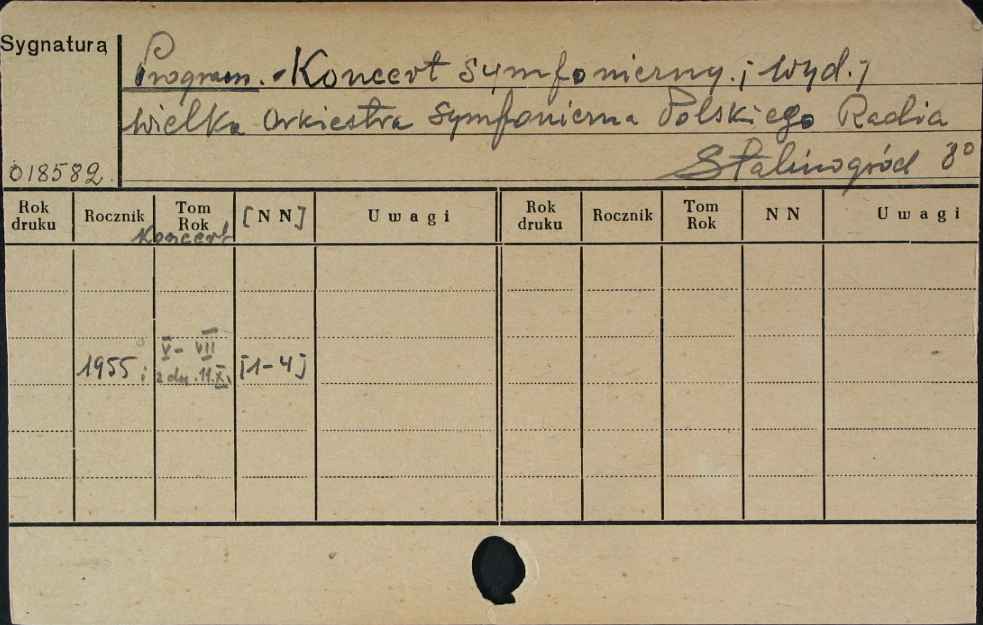 Sygnatura
Program. - Koncert symfoniczny. [wyd.]
Wielka Orkiestra Symfoniczna Polskiego Radia
018582 Stalinogród 8°
Rok druku Rocznik Tom Rok [NN] Uwagi Rok druku Rocznik Tom Rok NN Uwagi
Koncert
V - VII
1955 i z dn. 11.XI. [1-4]